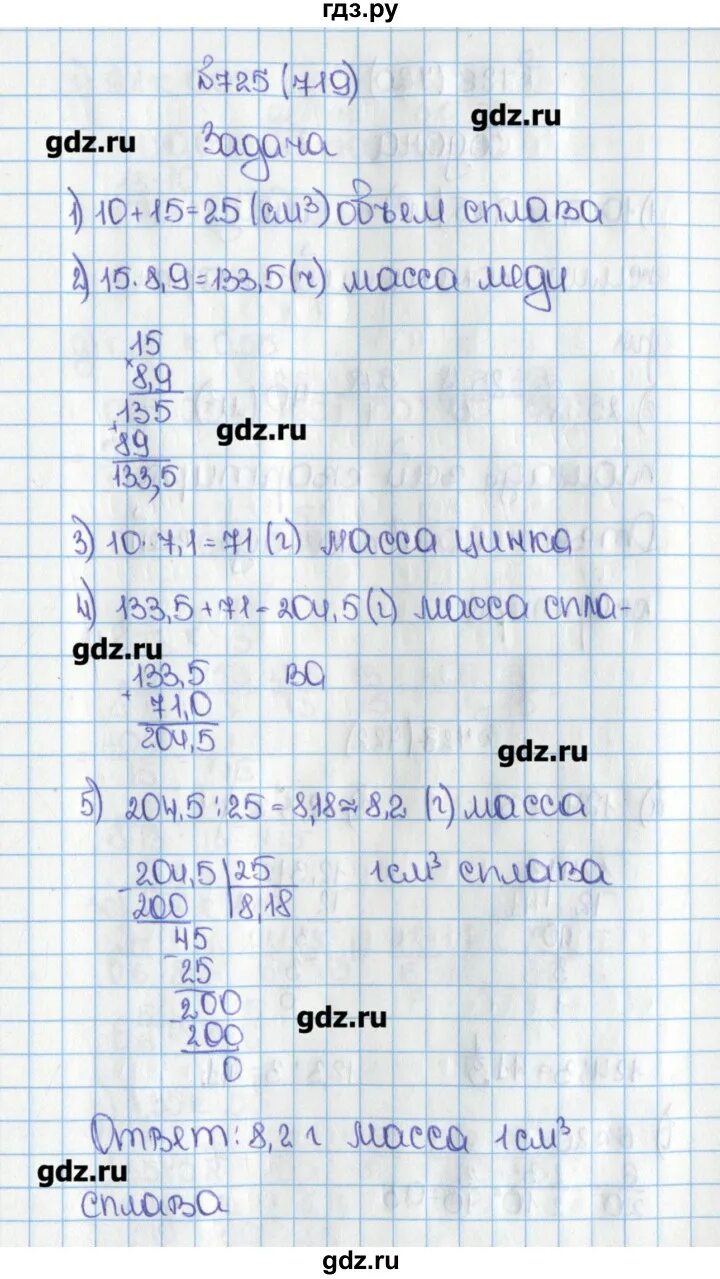 гдз.ру
№725 (719)
gdz.ru
gdz.ru
Задача
1) 10+15=25 (см³) объем сплава
2) 15·8,9=133,5 (г) масса меди
15
× 8,9
135
+ 89
133,5
gdz.ru
3) 10·7,1=71 (г) масса цинка
4) 133,5+71=204,5 (г) масса спла-
gdz.ru
133,5 ва
+ 71,0
204,5
gdz.ru
5) 204,5:25=8,18≈8,2 (г) масса
204,5 | 25 1см³ сплава
200 | 8,18
45
25
200
gdz.ru
200
0
Ответ: 8,2 г масса 1см³
gdz.ru
сплава
gdz.ru